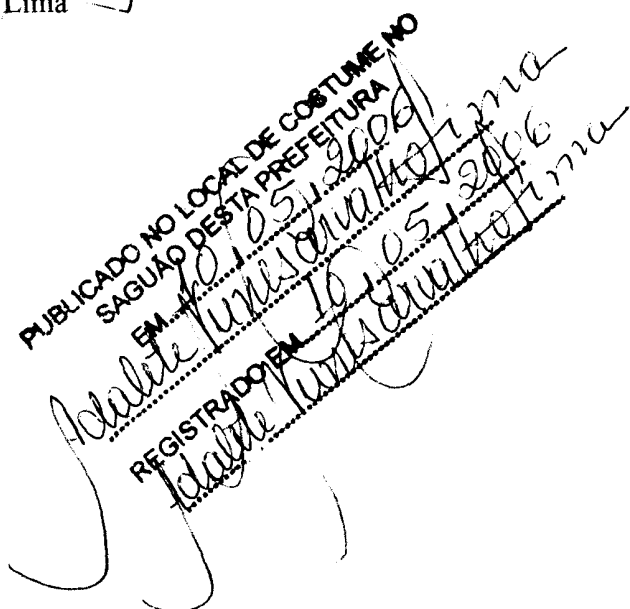 Lima
PUBLICADO NO LOCAL DE COSTUME NO
SAGUÃO DESTA PREFEITURA
EM 10, 05, 2006
Idalete Nunes Carvalho Lima
REGISTRADO EM 10, 05, 2006
Idalete Nunes Carvalho Lima